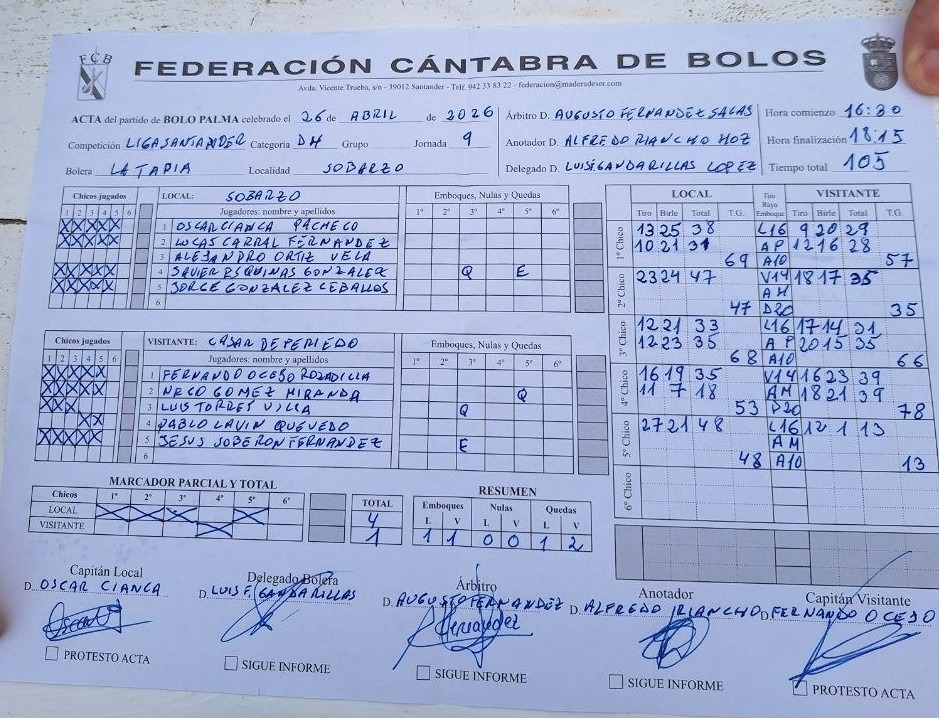 FCB
FEDERACIÓN CÁNTABRA DE BOLOS
Avda. Vicente Trueba, s/n - 39012 Santander - Telf. 942 33 83 22 - federacion@maderadeser.com
ACTA del partido de BOLO PALMA celebrado el 26 de ABRIL de 2026
Competición LIGA SANTANDER Categoría DH Grupo Jornada 9
Bolera LA TAPIA Localidad SOBARZO
Árbitro D. AUGUSTO FERNANDEZ SALAS
Anotador D. ALFREDO RIANCHO HOZ
Delegado D. LUIS F. GANDARILLAS LOPEZ
Hora comienzo 16:30
Hora finalización 18:15
Tiempo total 105
Chicos jugados LOCAL: SOBARZO Emboques, Nulas y Quedas
1 2 3 4 5 6 Jugadores: nombre y apellidos 1º 2º 3º 4º 5º 6º
X X X X X 1 OSCAR CIANCA PACHECO
X X X X X 2 LUCAS CARRAL FERNANDEZ
3 ALEJANDRO ORTIZ VELA
X X X X X 4 JAVIER ESQUINAS GONZALEZ Q E
X X X X X 5 JORGE GONZALEZ CEBALLOS
6
Chicos jugados VISITANTE: CASAR DE PERIEDO Emboques, Nulas y Quedas
1 2 3 4 5 6 Jugadores: nombre y apellidos 1º 2º 3º 4º 5º 6º
X X X X X 1 FERNANDO OCEJO ROZADILLA
X X X X X 2 NECO GOMEZ MIRANDA Q
X X X 3 LUIS TORRES VILLA Q
X X 4 PABLO LAVIN QUEVEDO
X X X X X 5 JESUS SOBERON FERNANDEZ E
6
LOCAL Tiro Raya Emboque VISITANTE
Tiro Birle Total T.G. Tiro Birle Total T.G.
1º Chico 13 25 38 L16 9 20 29
10 21 31 AP 12 16 28
69 A10 57
2º Chico 23 24 47 V14 18 17 35
AM
47 D20 35
3º Chico 12 21 33 L16 17 14 31
12 23 35 AP 20 15 35
68 A10 66
4º Chico 16 19 35 V14 16 23 39
11 7 18 AM 18 21 39
53 D20 78
5º Chico 27 21 48 L16 12 1 13
AM
48 A10 13
6º Chico
MARCADOR PARCIAL Y TOTAL
Chicos 1º 2º 3º 4º 5º 6º TOTAL
LOCAL X X X X 4
VISITANTE X 1
RESUMEN
Emboques Nulas Quedas
L V L V L V
1 1 0 0 1 2
Capitán Local
D. OSCAR CIANCA
PROTESTO ACTA
Delegado Bolera
D. LUIS F. GANDARILLAS
SIGUE INFORME
Árbitro
D. AUGUSTO FERNANDEZ
Fernandez
SIGUE INFORME
Anotador
D. ALFREDO RIANCHO
SIGUE INFORME
Capitán Visitante
D. FERNANDO OCEJO
PROTESTO ACTA